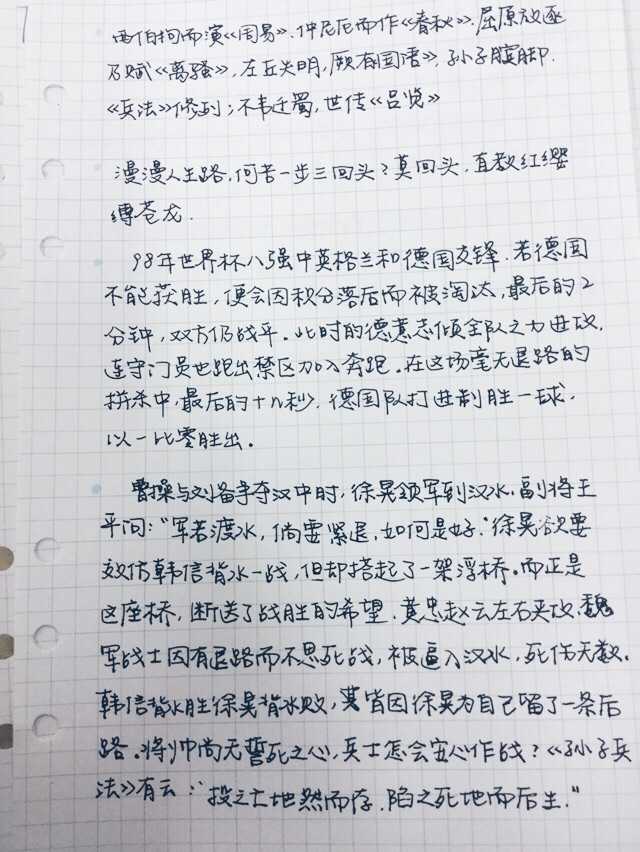 西伯拘而演《周易》、仲尼厄而作《春秋》、屈原放逐
乃赋《离骚》，左丘失明，厥有国语》，孙子膑脚.
《兵法》修列；不韦迁蜀，世传《吕览》
漫漫人生路，何苦一步三回头？莫回头，直教红缨
缚苍龙.
98年世界杯八强中英格兰和德国交锋.若德国
不能获胜，便会因积分落后而被淘汰，最后的2
分钟，双方仍战平.此时的德意志倾全队之力进攻，
连守门员也跑出禁区加入奔跑.在这场毫无退路的
拼杀中，最后的十几秒，德国队打进制胜一球，
以一比零胜出.
曹操与刘备争夺汉中时，徐晃领军到汉水.副将王
平问：“军若渡水，倘要紧退，如何是好.”徐晃欲要
效仿韩信背水一战，但却搭起了一架浮桥.而正是
这座桥，断送了战胜的希望.黄忠赵云左右夹攻，魏
军战士因有退路而不思死战，被逼入汉水，死伤无数.
韩信背水胜徐晃背水败，皆因徐晃为自己留了一条后
路.将帅尚无誓死之心，兵士怎会安心作战？《孙子兵
法》有云：“投之亡地然而存.陷之死地而后生.”